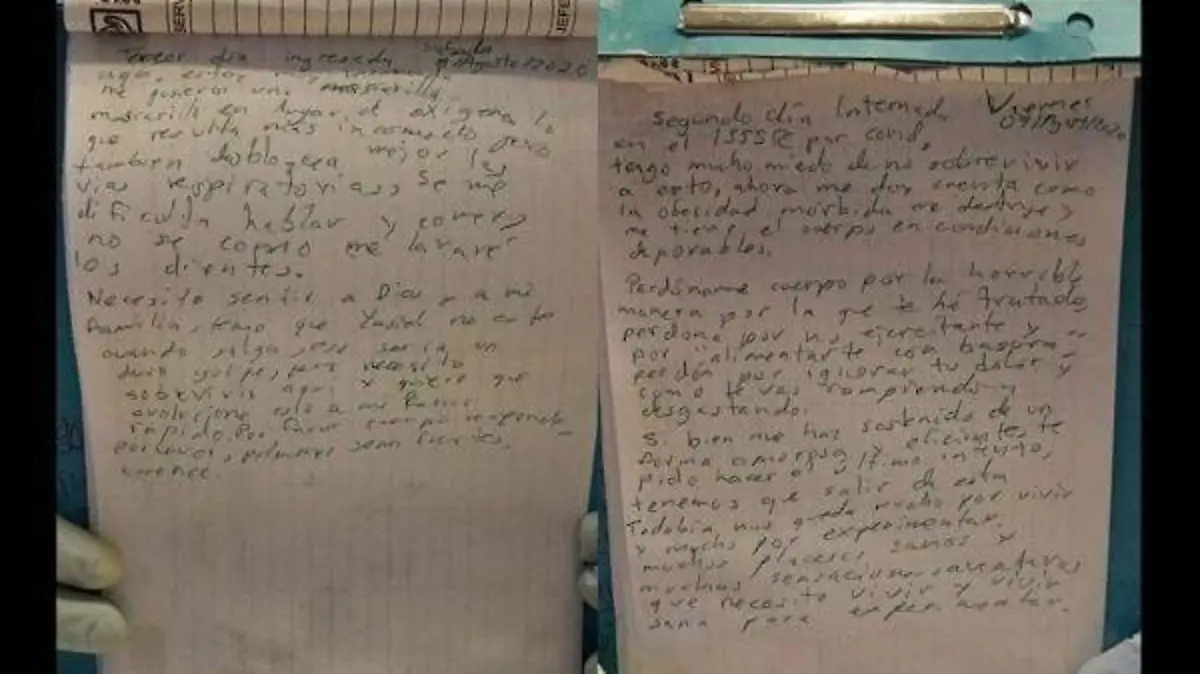 SERV
JEFE
Tercer día ingresada Sabado
8/Agosto/2020
me pusieron una mascarilla
mascarilla en lugar de oxigeno lo
que resulta más incomodo pero
tambien desbloquea mejor las
vías respiratorias, se me
dificulta hablar y comer y
no se como me lavaré
los dientes.
Necesito sentir a Dios y a mi
familia, temo que no este
cuando salga, ese seria un
duro golpe, pero necesito
sobrevivir aquí y quiero que
evolucione esto a mi favor
rápido. Por favor cuerpo responde
por favor, pulmones sean fuertes,
avance.
Segundo día Internada Viernes
07/Agosto/2020
en el ISSSTE por covid,
tengo mucho miedo de no sobrevivir
a esto, ahora me doy cuenta como
la obesidad mórbida me destruye y
me tiene el cuerpo en condiciones
deporables.
Perdóname cuerpo por la horrible
manera por la que te hé tratado,
perdona por no ejercitarte y
por "alimentarte con basura"
perdón por ignorar tu dolor y
como te vas rompiendo y
desgastando.
Si bien me haz sostenido de un
forma amorosa y eficiente, te
pido hacer el último intento,
tenemos que salir de esta
Todabia nos queda mucho por vivir
y mucho por experimentar.
muchos placeres sanos y
muchas sensaciones
que necesito vivir y vivir
sana para experimentar.